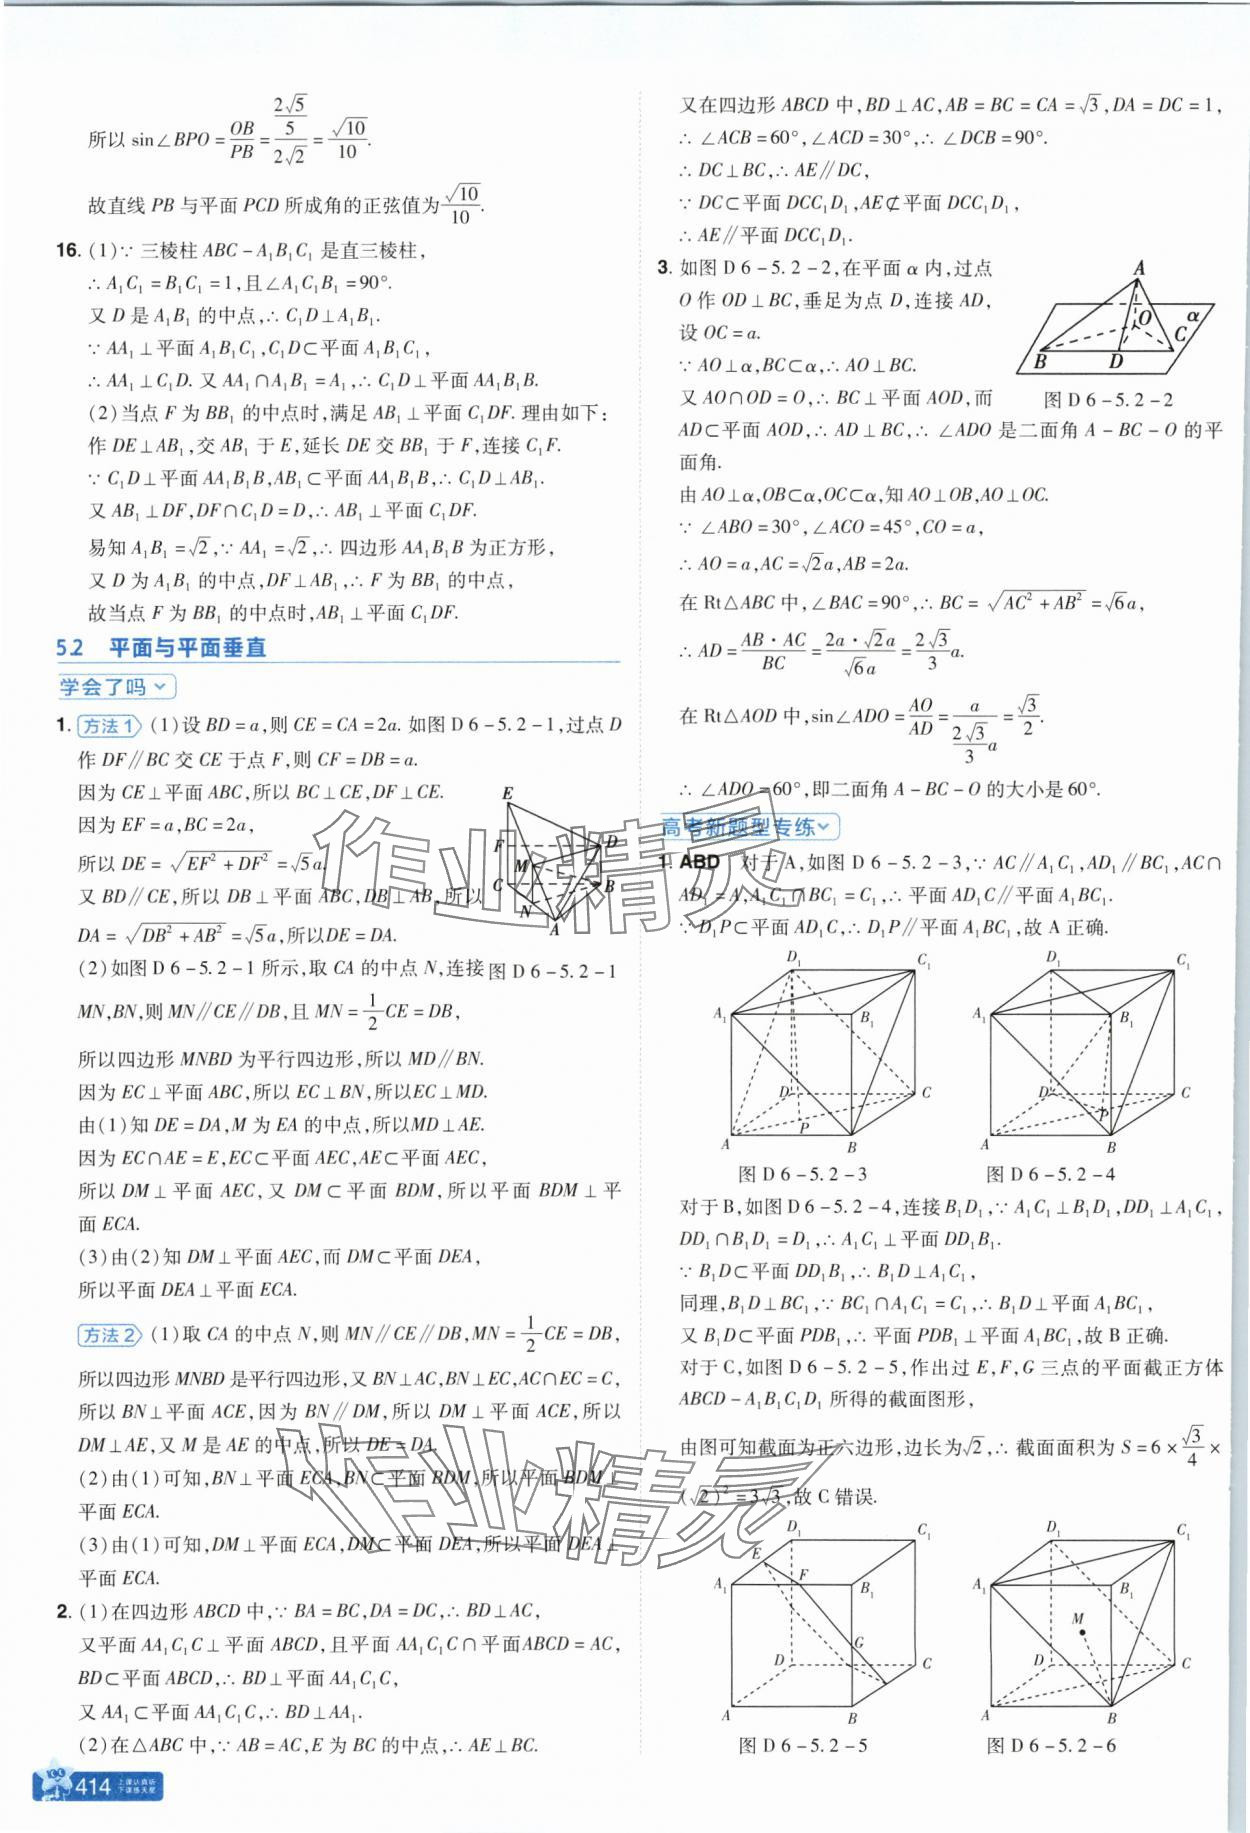 所以 sin∠BPO = OB/PB = (2√5/5)/(2√2) = √10/10.
故直线 PB 与平面 PCD 所成角的正弦值为 √10/10.
16. (1)∵ 三棱柱 ABC－A₁B₁C₁ 是直三棱柱,
∴ A₁C₁ = B₁C₁ = 1,且∠A₁C₁B₁ = 90°.
又 D 是 A₁B₁ 的中点,∴ C₁D⊥A₁B₁.
∵ AA₁⊥平面 A₁B₁C₁,C₁D⊂平面 A₁B₁C₁,
∴ AA₁⊥C₁D. 又 AA₁∩A₁B₁ = A₁,∴ C₁D⊥平面 AA₁B₁B.
(2)当点 F 为 BB₁ 的中点时,满足 AB₁⊥平面 C₁DF. 理由如下:
作 DE⊥AB₁,交 AB₁ 于 E,延长 DE 交 BB₁ 于 F,连接 C₁F.
∵ C₁D⊥平面 AA₁B₁B,AB₁⊂平面 AA₁B₁B,∴ C₁D⊥AB₁.
又 AB₁⊥DF,DF∩C₁D = D,∴ AB₁⊥平面 C₁DF.
易知 A₁B₁ = √2,∵ AA₁ = √2,∴ 四边形 AA₁B₁B 为正方形,
又 D 为 A₁B₁ 的中点,DF⊥AB₁,∴ F 为 BB₁ 的中点,
故当点 F 为 BB₁ 的中点时,AB₁⊥平面 C₁DF.
5.2 平面与平面垂直
学会了吗
1. 方法1 (1)设 BD = a,则 CE = CA = 2a. 如图 D 6－5.2－1,过点 D
作 DF∥BC 交 CE 于点 F,则 CF = DB = a.
因为 CE⊥平面 ABC,所以 BC⊥CE,DF⊥CE.
因为 EF = a,BC = 2a,
所以 DE = √(EF² + DF²) = √5a.
又 BD∥CE,所以 DB⊥平面 ABC,DB⊥AB,所以
DA = √(DB² + AB²) = √5a,所以DE = DA.
E
F
D
M
C
B
N
A
图 D 6－5.2－1
(2)如图 D 6－5.2－1 所示,取 CA 的中点 N,连接
MN,BN,则 MN∥CE∥DB,且 MN = 1/2 CE = DB,
所以四边形 MNBD 为平行四边形,所以 MD∥BN.
因为 EC⊥平面 ABC,所以 EC⊥BN,所以EC⊥MD.
由(1)知 DE = DA,M 为 EA 的中点,所以MD⊥AE.
因为 EC∩AE = E,EC⊂平面 AEC,AE⊂平面 AEC,
所以 DM⊥平面 AEC,又 DM⊂平面 BDM,所以平面 BDM⊥平
面 ECA.
(3)由(2)知 DM⊥平面 AEC,而 DM⊂平面 DEA,
所以平面 DEA⊥平面 ECA.
方法2 (1)取 CA 的中点 N,则 MN∥CE∥DB,MN = 1/2 CE = DB,
所以四边形 MNBD 是平行四边形,又 BN⊥AC,BN⊥EC,AC∩EC = C,
所以 BN⊥平面 ACE,因为 BN∥DM,所以 DM⊥平面 ACE,所以
DM⊥AE,又 M 是 AE 的中点,所以 DE = DA.
(2)由(1)可知,BN⊥平面 ECA,BN⊂平面 BDM,所以平面 BDM⊥
平面 ECA.
(3)由(1)可知,DM⊥平面 ECA,DM⊂平面 DEA,所以平面 DEA⊥
平面 ECA.
2. (1)在四边形 ABCD 中,∵ BA = BC,DA = DC,∴ BD⊥AC,
又平面 AA₁C₁C⊥平面 ABCD,且平面 AA₁C₁C∩平面ABCD = AC,
BD⊂平面 ABCD,∴ BD⊥平面 AA₁C₁C,
又 AA₁⊂平面 AA₁C₁C,∴ BD⊥AA₁.
(2)在△ABC 中,∵ AB = AC,E 为 BC 的中点,∴ AE⊥BC.
414 上课认真听
下课练天星
又在四边形 ABCD 中,BD⊥AC,AB = BC = CA = √3,DA = DC = 1,
∴ ∠ACB = 60°,∠ACD = 30°,∴ ∠DCB = 90°.
∴ DC⊥BC,∴ AE∥DC,
∵ DC⊂平面 DCC₁D₁,AE⊄平面 DCC₁D₁,
∴ AE∥平面 DCC₁D₁.
3. 如图 D 6－5.2－2,在平面 α 内,过点
O 作 OD⊥BC,垂足为点 D,连接 AD,
设 OC = a.
∵ AO⊥α,BC⊂α,∴ AO⊥BC.
又 AO∩OD = O,∴ BC⊥平面 AOD,而
A
O
α
B
D
C
图 D 6－5.2－2
AD⊂平面 AOD,∴ AD⊥BC,∴ ∠ADO 是二面角 A－BC－O 的平
面角.
由 AO⊥α,OB⊂α,OC⊂α,知 AO⊥OB,AO⊥OC.
∵ ∠ABO = 30°,∠ACO = 45°,CO = a,
∴ AO = a,AC = √2a,AB = 2a.
在 Rt△ABC 中,∠BAC = 90°,∴ BC = √(AC² + AB²) = √6a,
∴ AD = AB·AC/BC = 2a·√2a/√6a = 2√3/3 a.
在 Rt△AOD 中,sin∠ADO = AO/AD = a/(2√3/3 a) = √3/2.
∴ ∠ADO = 60°,即二面角 A－BC－O 的大小是 60°.
高考新题型专练
1. ABD 对于 A,如图 D 6－5.2－3,∵ AC∥A₁C₁,AD₁∥BC₁,AC∩
AD₁ = A,A₁C₁∩BC₁ = C₁,∴ 平面 AD₁C∥平面 A₁BC₁.
∵ D₁P⊂平面 AD₁C,∴ D₁P∥平面 A₁BC₁,故 A 正确.
D₁
C₁
A₁
B₁
D
C
P
A
B
图 D 6－5.2－3
D₁
C₁
A₁
B₁
D
C
P
A
B
图 D 6－5.2－4
对于 B,如图 D 6－5.2－4,连接 B₁D₁,∵ A₁C₁⊥B₁D₁,DD₁⊥A₁C₁,
DD₁∩B₁D₁ = D₁,∴ A₁C₁⊥平面 DD₁B₁.
∵ B₁D⊂平面 DD₁B₁,∴ B₁D⊥A₁C₁,
同理,B₁D⊥BC₁,∵ BC₁∩A₁C₁ = C₁,∴ B₁D⊥平面 A₁BC₁,
又 B₁D⊂平面 PDB₁,∴ 平面 PDB₁⊥平面 A₁BC₁,故 B 正确.
对于 C,如图 D 6－5.2－5,作出过 E,F,G 三点的平面截正方体
ABCD－A₁B₁C₁D₁ 所得的截面图形,
由图可知截面为正六边形,边长为√2,∴ 截面面积为 S = 6 × √3/4 ×
(√2)² = 3√3,故 C 错误.
D₁
C₁
E
A₁
F
B₁
G
D
C
A
B
图 D 6－5.2－5
D₁
C₁
A₁
B₁
M
D
C
A
B
图 D 6－5.2－6
作业精灵
作业精灵